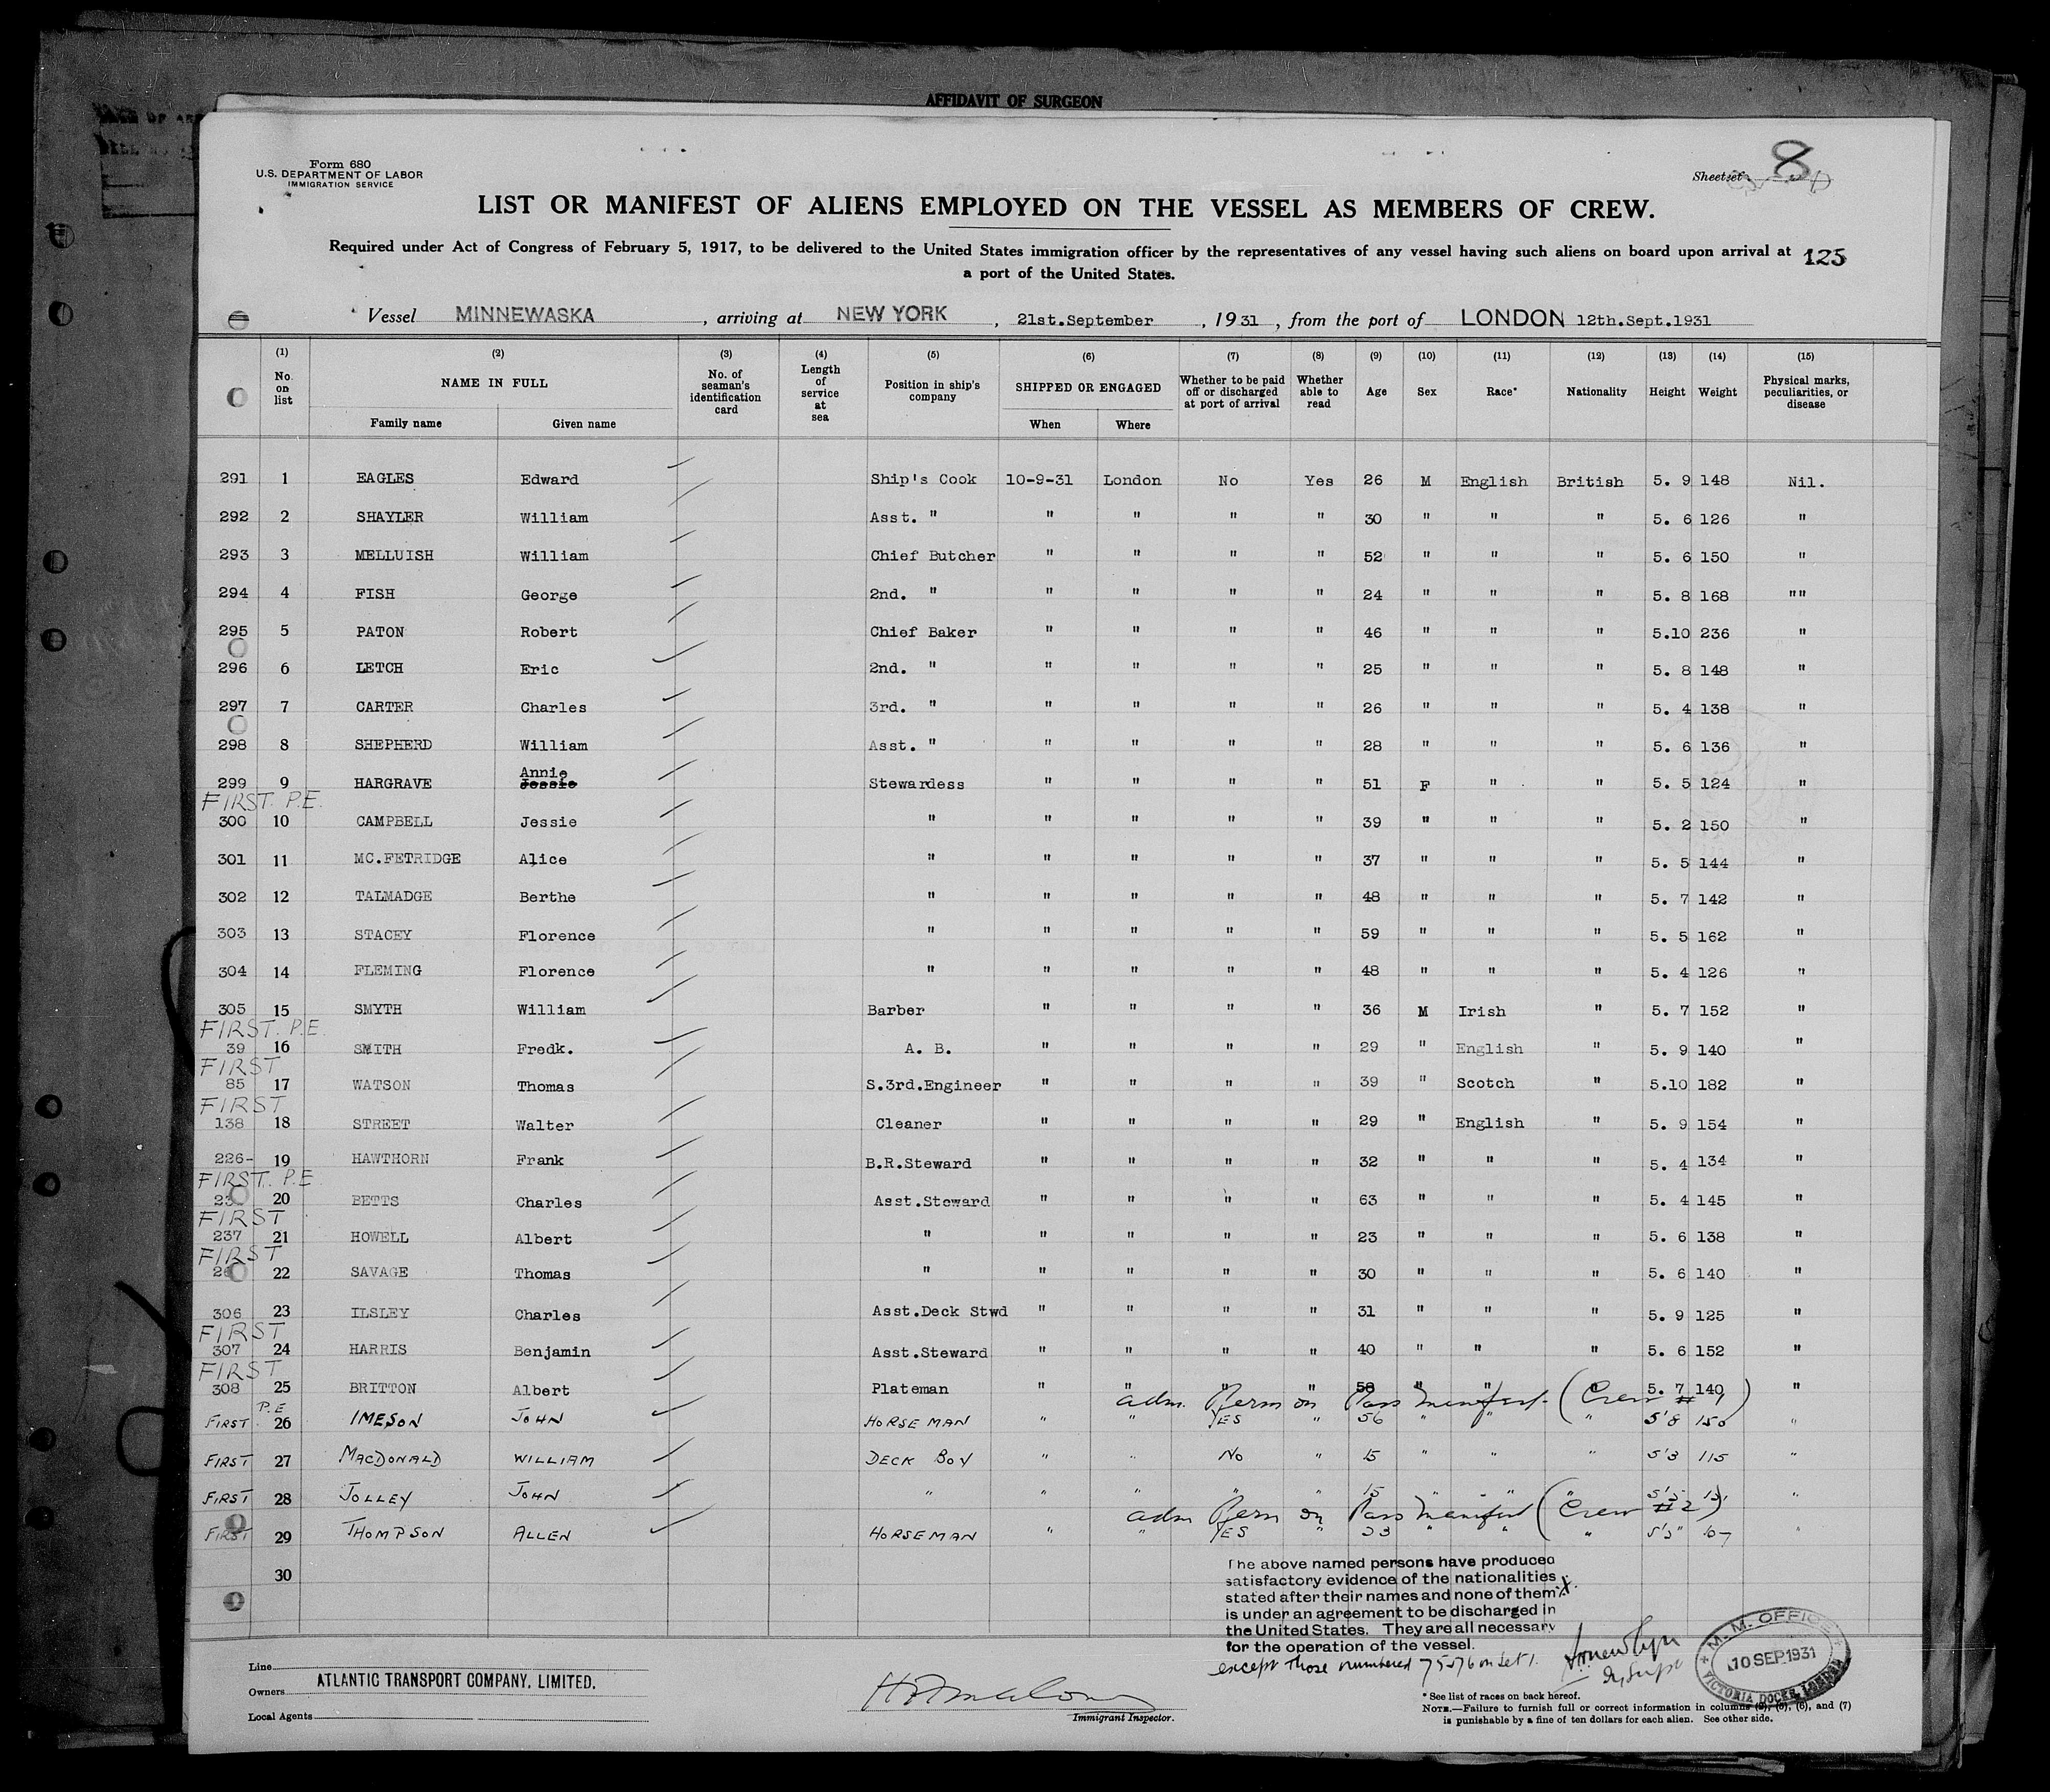 AFFIDAVIT OF SURGEON
Form 680
U.S. DEPARTMENT OF LABOR
IMMIGRATION SERVICE
Sheet of 8
LIST OR MANIFEST OF ALIENS EMPLOYED ON THE VESSEL AS MEMBERS OF CREW.
Required under Act of Congress of February 5, 1917, to be delivered to the United States immigration officer by the representatives of any vessel having such aliens on board upon arrival at
a port of the United States.
125
Vessel MINNEWASKA, arriving at NEW YORK, 21st.September, 1931, from the port of LONDON 12th.Sept.1931
(1) (2) (3) (4) (5) (6) (7) (8) (9) (10) (11) (12) (13) (14) (15)
No. on list NAME IN FULL Family name Given name No. of seaman's identification card Length of service at sea Position in ship's company SHIPPED OR ENGAGED When Where Whether to be paid off or discharged at port of arrival Whether able to read Age Sex Race* Nationality Height Weight Physical marks, peculiarities, or disease
291 1 EAGLES Edward Ship's Cook 10-9-31 London No Yes 26 M English British 5. 9 148 Nil.
292 2 SHAYLER William Asst. " " " " " 30 " " " 5. 6 126 "
293 3 MELLUISH William Chief Butcher " " " " 52 " " " 5. 6 150 "
294 4 FISH George 2nd. " " " " " 24 " " " 5. 8 168 ""
295 5 PATON Robert Chief Baker " " " " 46 " " " 5.10 236 "
296 6 LETCH Eric 2nd. " " " " " 25 " " " 5. 8 148 "
297 7 CARTER Charles 3rd. " " " " " 26 " " " 5. 4 138 "
298 8 SHEPHERD William Asst. " " " " " 28 " " " 5. 6 136 "
299 9 HARGRAVE Annie Jessie Stewardess " " " " 51 F " " 5. 5 124 "
FIRST P.E.
300 10 CAMPBELL Jessie " " " " " 39 " " " 5. 2 150 "
301 11 MC.FETRIDGE Alice " " " " " 37 " " " 5. 5 144 "
302 12 TALMADGE Berthe " " " " " 48 " " " 5. 7 142 "
303 13 STACEY Florence " " " " " 59 " " " 5. 5 162 "
304 14 FLEMING Florence " " " " " 48 " " " 5. 4 126 "
305 15 SMYTH William Barber " " " " 36 M Irish " 5. 7 152 "
FIRST. P.E.
39 16 SMITH Fredk. A. B. " " " " 29 " English " 5. 9 140 "
FIRST
85 17 WATSON Thomas S.3rd.Engineer " " " " 39 " Scotch " 5.10 182 "
FIRST
138 18 STREET Walter Cleaner " " " " 29 " English " 5. 9 154 "
226- 19 HAWTHORN Frank B.R.Steward " " " " 32 " " " 5. 4 134 "
FIRST. P.E
20 BETTS Charles Asst.Steward " " " " 63 " " " 5. 4 145 "
FIRST
237 21 HOWELL Albert " " " " " 23 " " " 5. 6 138 "
FIRST
22 SAVAGE Thomas " " " " " 30 " " " 5. 6 140 "
306 23 ILSLEY Charles Asst.Deck Stwd " " " " 31 " " " 5. 9 125 "
FIRST
307 24 HARRIS Benjamin Asst.Steward " " " " 40 " " " 5. 6 152 "
FIRST
308 25 BRITTON Albert Plateman " " " " 58 " " " 5. 7 140 "
adm. Perm on Pass manifest (Crew # 1)
FIRST P.E 26 IMESON JOHN HORSEMAN " " YES " 56 " " " 5'8 150 "
FIRST 27 MACDONALD WILLIAM DECK BOY " " No " 15 " " " 5'3 115 "
FIRST 28 JOLLEY JOHN " " " " " 15 " " " 5'5 "
adm Perm on Pass manifest (Crew # 2)
FIRST 29 THOMPSON ALLEN HORSEMAN " " YES " 23 " " " "
30
The above named persons have produced
satisfactory evidence of the nationalities
stated after their names and none of them X.
is under an agreement to be discharged in
the United States. They are all necessary
for the operation of the vessel.
except those numbered 75 & 76 on Set 1.
M. M. OFFICE
10 SEP 1931
VICTORIA DOCKS, LONDON
Line
Owners ATLANTIC TRANSPORT COMPANY, LIMITED.
Local Agents
Immigrant Inspector.
* See list of races on back hereof.
NOTE.—Failure to furnish full or correct information in columns (2), (5), (6), and (7)
is punishable by a fine of ten dollars for each alien. See other side.